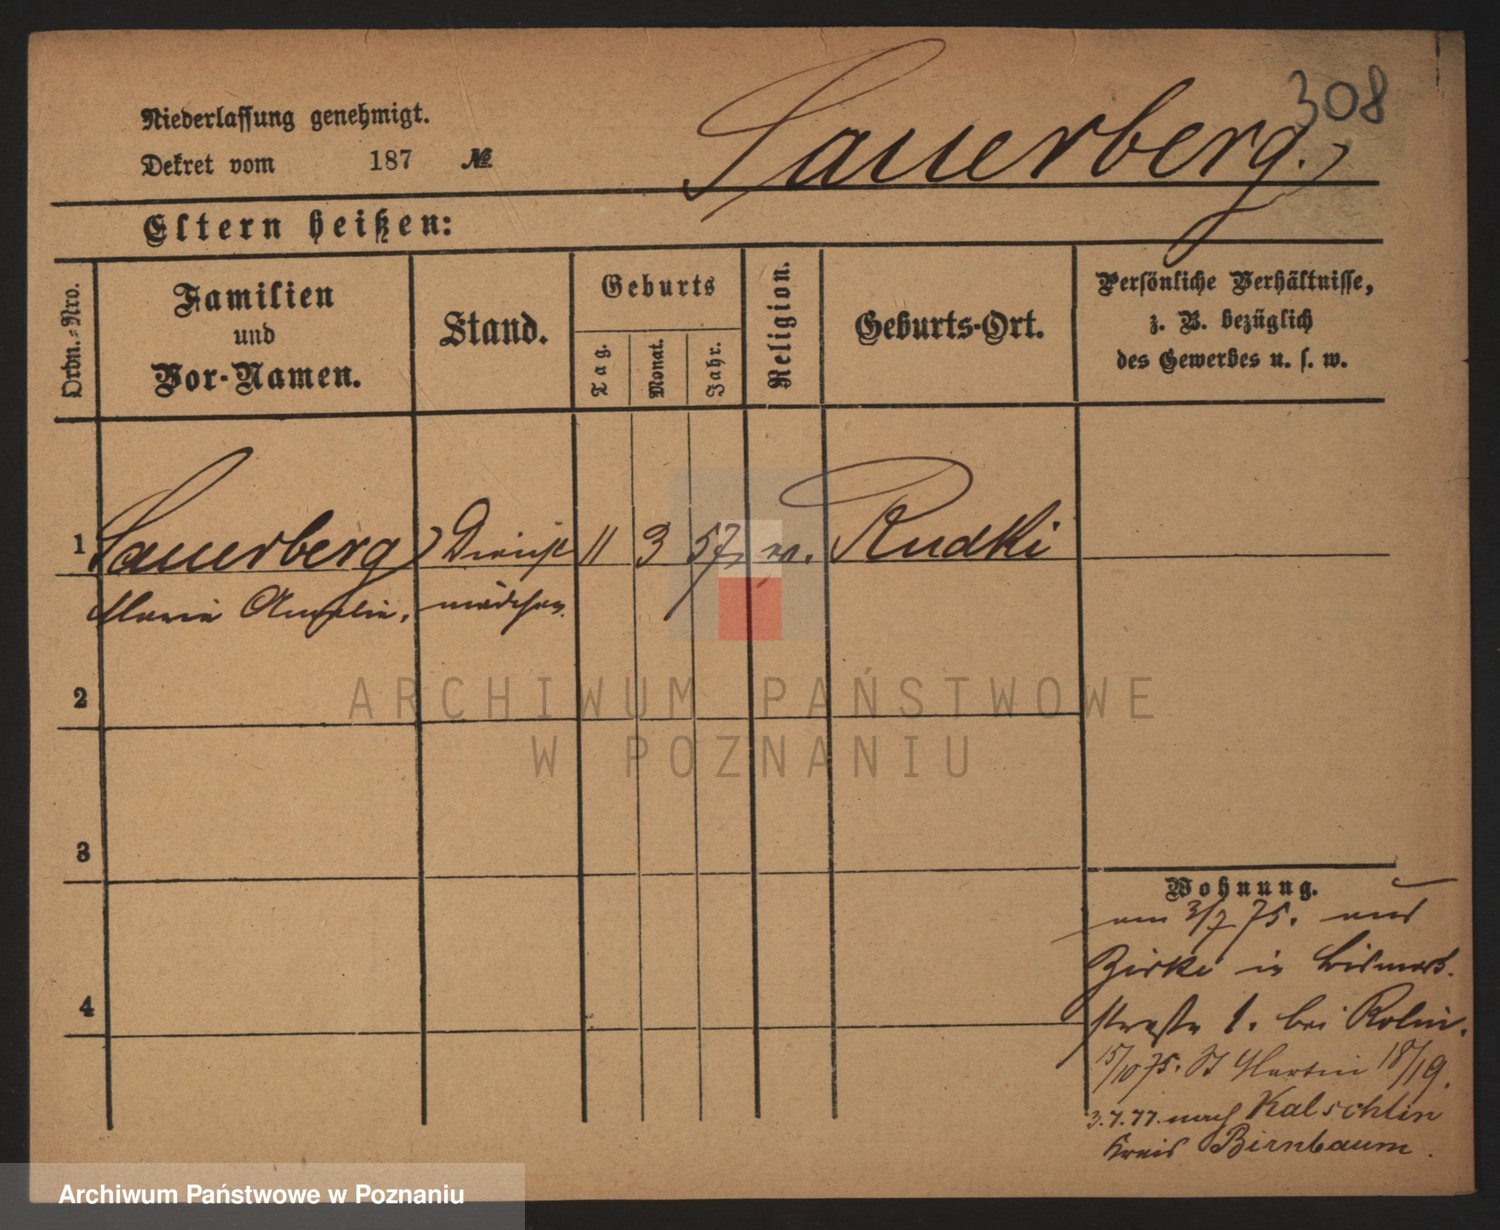 308
Sauerberg.,
Niederlassung genehmigt.
Dekret vom 187 №
Eltern heißen:
Ordn.-Nro.
Familien
und
Vor-Namen.
Stand.
Geburts
Tag.
Monat.
Jahr.
Religion.
Geburts-Ort.
Persönliche Verhältnisse,
z. B. bezüglich
des Gewerbes u. s. w.
1 Sauerberg, Dienst 11 3 57, Rudki
Marie Amalie, mädchen.
2
3
4
Wohnung.
am 3/7 75. aus
Zirke in Bismark.
straße 1. bei Rolin.
15/10 75. St Martin 18/19.
3.7.77. nach Kalschlin
Kreis Birnbaum.
ARCHIWUM PAŃSTWOWE
W POZNANIU
Archiwum Państwowe w Poznaniu